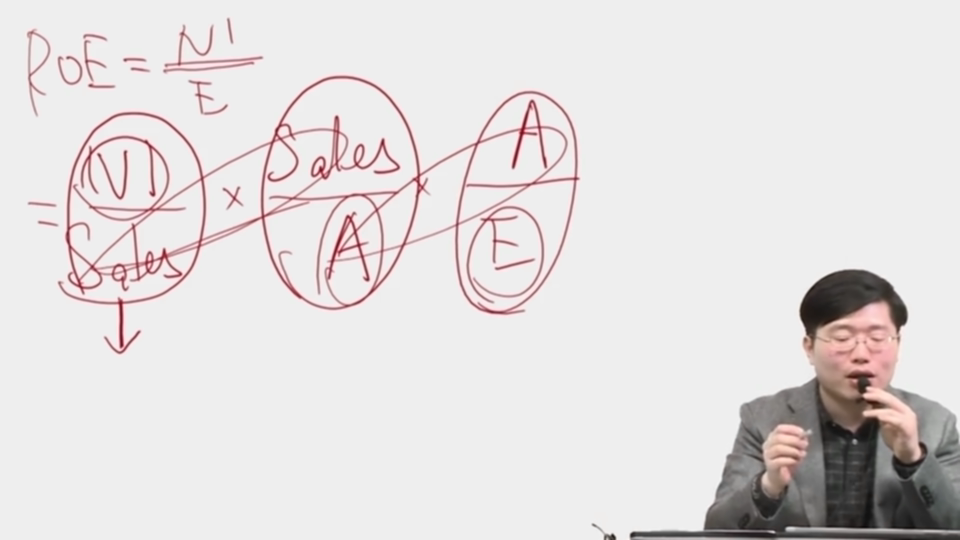 ROE = NI
E
= NI × Sales × A
Sales A E